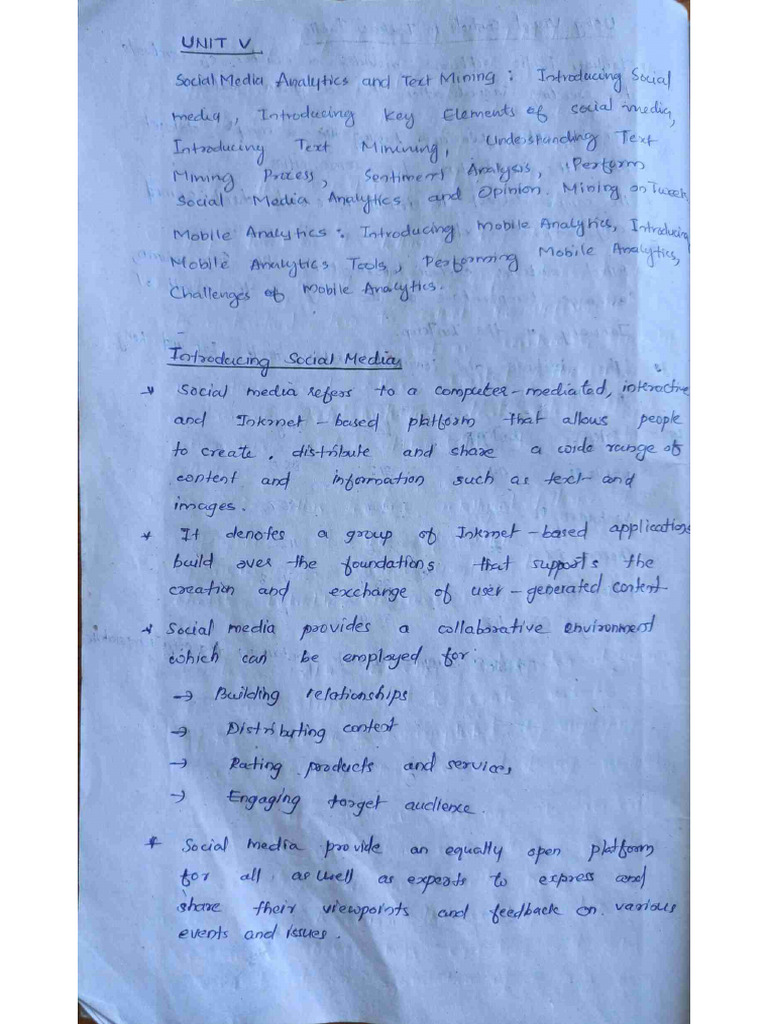 UNIT V
Social Media Analytics and Text Mining : Introducing Social
media, Introducing key Elements of social media,
Introducing Text Minining, Understanding Text
Mining Process, Sentiment Analysis, Perform
Social Media Analytics, and Opinion Mining on Tweets.
Mobile Analytics : Introducing Mobile Analytics, Introducing
Mobile Analytics Tools, Performing Mobile Analytics,
Challenges of Mobile Analytics.
Introducing Social Media
* Social media refers to a computer-mediated, interactive
and Internet-based platform that allows people
to create, distribute and share a wide range of
content and information such as text and
images.
* It denotes a group of Internet-based applications
build over the foundations that supports the
creation and exchange of user-generated content
* Social media provides a collaborative environment
which can be employed for:
→ Building relationships
→ Distributing content
→ Rating products and services
→ Engaging target audience.
* Social media provide an equally open platform
for all, as well as experts to express and
share their viewpoints and feedback on various
events and issues.